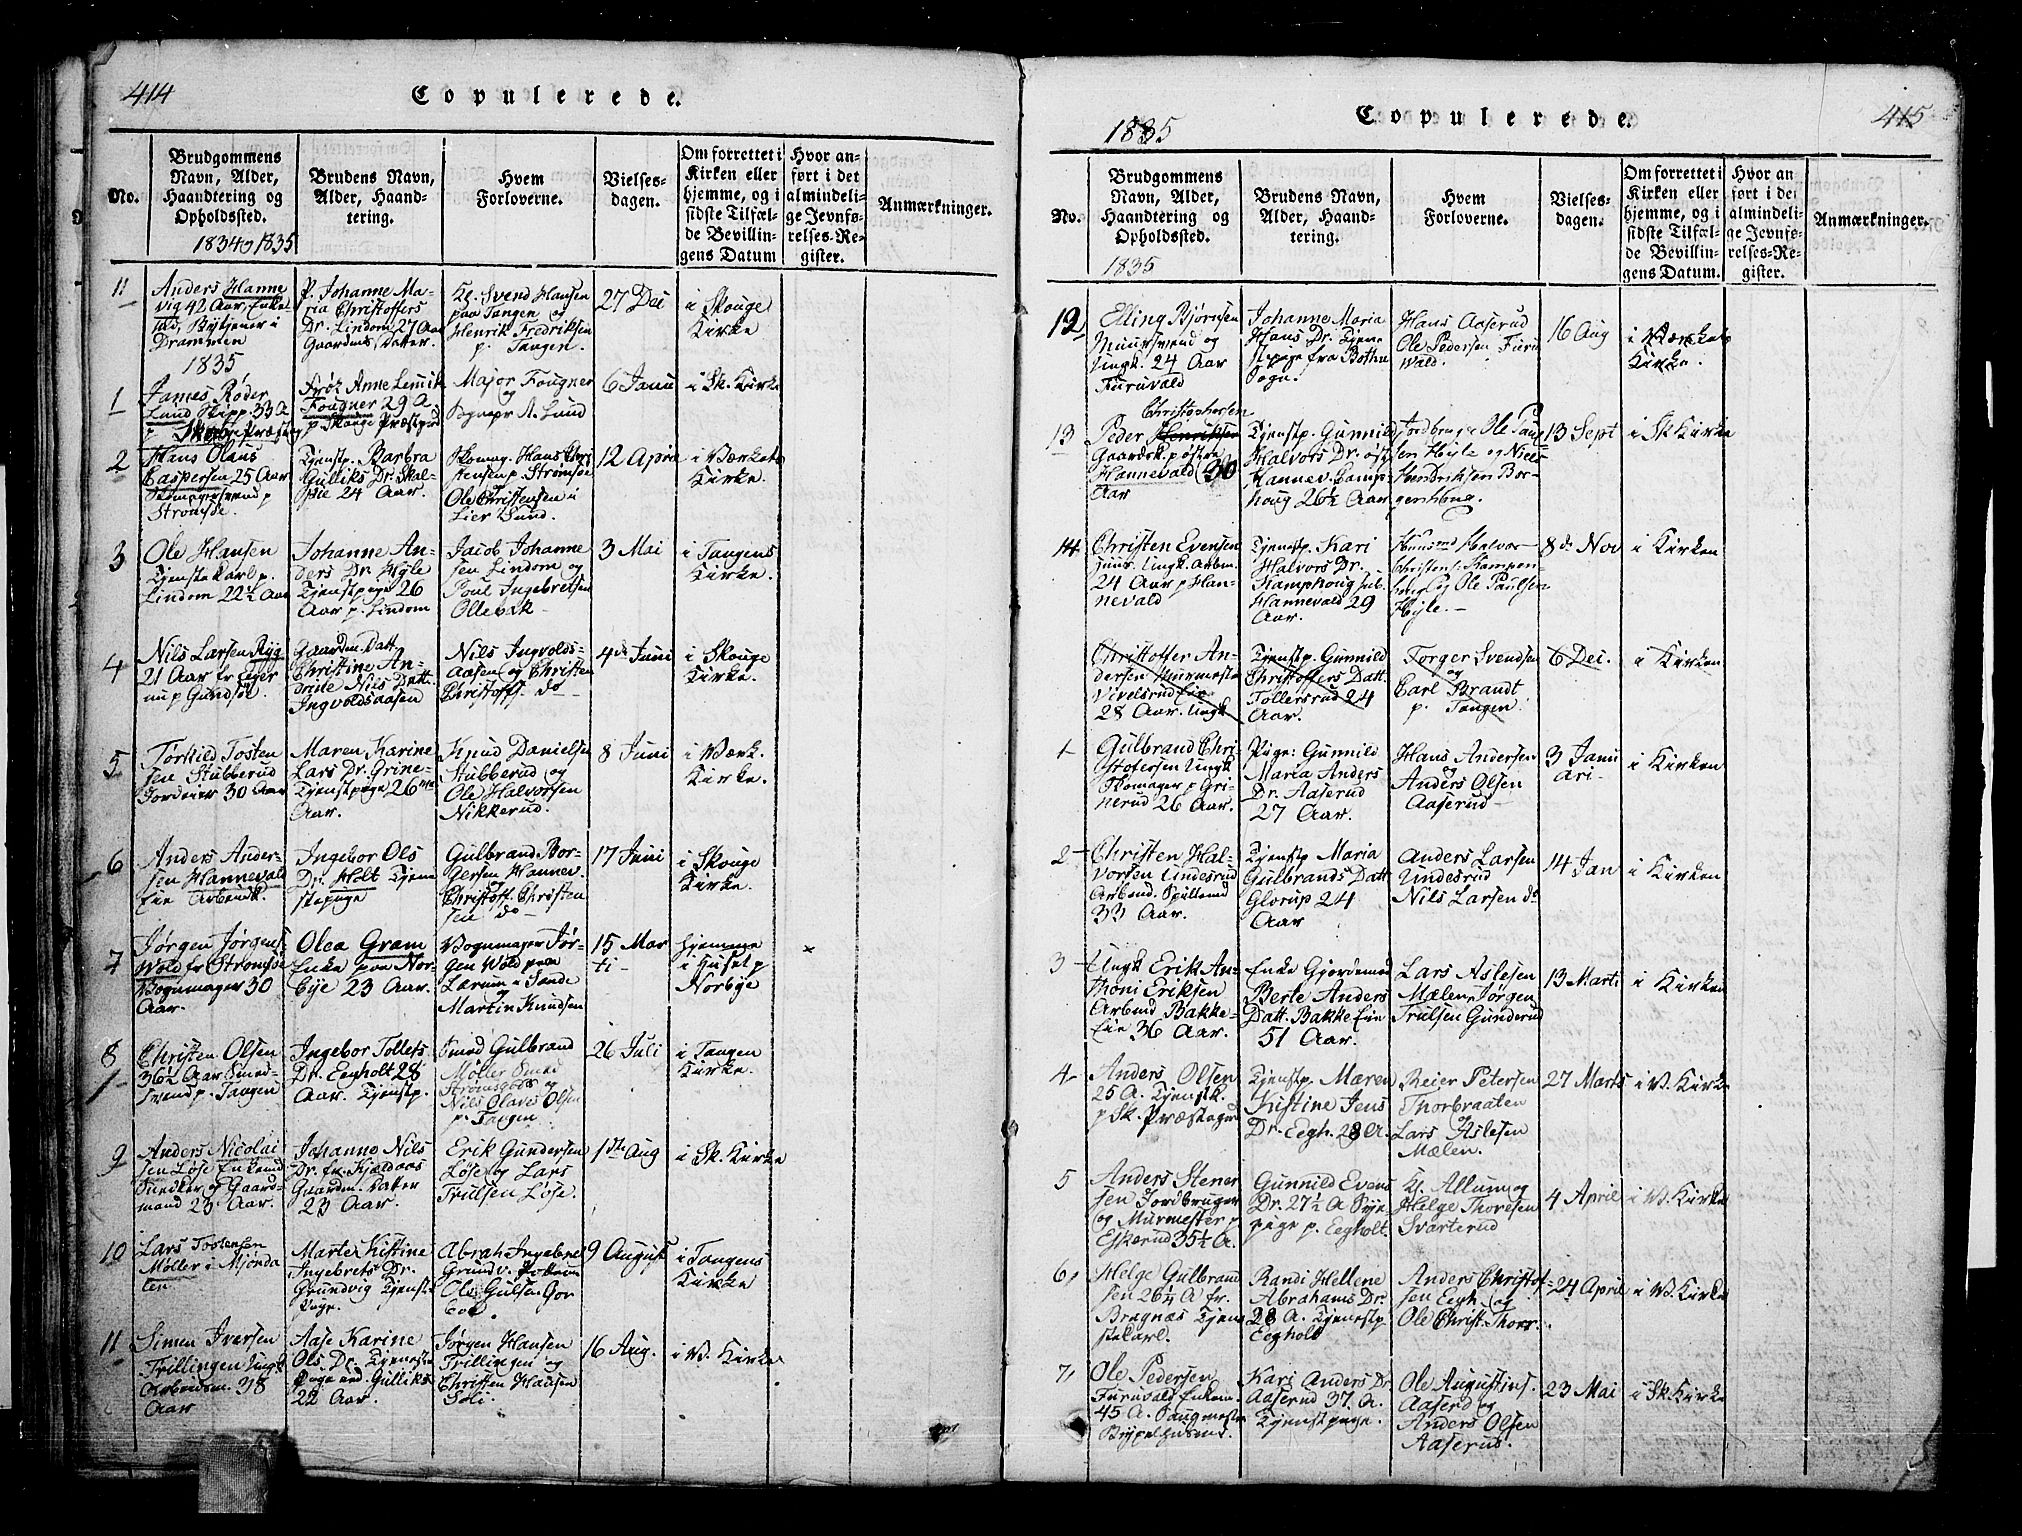 414
Copulerede.
No.
Brudgommens
Navn, Alder,
Haandtering og
Opholdssted.
1834 og 1835
Brudens Navn,
Alder, Haand-
tering.
Hvem
Forloverne.
Vielses-
dagen.
Om forrettet i
Kirken eller
hjemme, og i
sidste Tilfæl-
de Bevillin-
gens Datum
Hvor an-
ført i det
almindeli-
ge Jevnfø-
relses-Re-
gister.
Anmærkninger.
11
Anders Hanne
vig 42 Aar, Enke
Bytjener i
Drammen
P. Johanne Ma-
ria Christoffers
Dr. Lindom, 27 Aar
Gaardms Datter.
Kl. Svend Hansen
paa Tangen og
Henrik Fredriksen
p. Tangen.
27 Dec
i Skouge
Kirke
1835
1
James Røder
Lund Skipp 33 A
p Skoube Præsteg
Frøk Anne Lemik
Fougner 29 A.
p Skouge Præstgrd
Major Fougner
og
A. Lund
6 Janu
i Sk. Kirke
2
Hans Olaus
Caspersen 25 Aar
Skomagersvend p
Strømsøe.
Tjenstp. Barbra
Gulliks Dr. Skal-
24 Aar.
Skomag. Hans Chri
stensen p Strømsøe
Ole Christensen i
Lier Sund.
12 April
i Værkets
Kirke.
3
Ole Hansen
Tjenstekarl p.
Lindom 22½ Aar
Johanne An-
ders Dr Høle
Tjenstpige 26
Aar p. Lindom
Jacob Johanne
sen Lindom og
Poul Ingebretsen
Ollevek
3 Mai
i Tangens
Kirke.
4
Nils Larsen Ryg
21 Aar fr Eger
nu p Gundsøe
Gaardm. Datt
Christine An-
drine Nils Datt.
Ingvoldsaasen
Nils Ingvolds-
Aasen og Christen
Christoff. do
4de Juni
i Skouge
Kirke.
5
Torkild Tosten
sen Stubberud
Jordeier 30 Aar
Maren Karine
Lars Dr. Grine-
Tjenstpige 26
Aar.
Knud Danielsen
Stubberud og
Ole Halvorsen
Nikkerud.
8 Juni
i Værk.
Kirke.
6
Anders Ander-
sen Hannevald
Eie Arbeidsk.
Ingebor Ols
Dr. Holt Tjene
stepige
Gulbrand Bor-
gersen Hannev.
Christoff. Christen
sen do
17 Juni
i Skouge
Kirke.
7
Jørgen Jørgens
Wold fr Strømsøe
Vognmager 30
Aar.
Olea Gram
Enke paa Nor-
bye 23 Aar.
Vognmager Jør-
gen Wold paa
Lærum i Sande
og
Martin Knudsen
15 Mar
ti
hjemme
i Huset p
Norbye
×
8
Christen Olsen
36½ Aar Smed-
svend p. Tangen
Ingebor Tollefs
Dr. Eegholt 28
Aar. Tjenstp.
Smed Gulbrand
Møller Smed
Strømsgodset og
Nils Olaves Olsen
p. Tangen
26 Juli
i Tangen
Kirke.
9
Anders Nicolai
sen Løse Enkemd
Snedker og Gaard-
mand 23. Aar.
Johanne Nils
Dr. fr. Kjeldaas
Gaardm. Datter
23 Aar.
Erik Gundersen
Løse og Lars
Trulsen Løse.
1ste Aug
i Sk. Kirke
10
Lars Tostensen
Møller i Mjønda
len.
Marte Kistine
Ingebrets Dr.
Grundvig Tjenst
Pige.
Abrah. Ingebre
Grundv.
Ole Gulsen Gor
bek.
9 August
i Tangens
Kirke
11
Simen Iversen
Trillingen Ungk
Arbeidsm. 38
Aar
Aase Karine
Ols. Dr. Tjeneste
Pige ved Gulliks
22 Aar.
Jørgen Hansen
Trillingen og
Christen Hansen
Soli.
16 Aug.
i V. Kirke
415
Copulerede.
1835
No.
Brudgommens
Navn, Alder,
Haandtering og
Opholdssted.
1835
Brudens Navn,
Alder, Haand-
tering.
Hvem
Forloverne.
Vielses-
dagen.
Om forrettet i
Kirken eller
hjemme, og i
sidste Tilfæl-
de Bevillin-
gens Datum.
Hvor an
ført i det
almindeli-
ge Jevnfø-
relses-Re-
gister.
Anmærkninger.
12
Elling Bjørnsen
Muursvend og
Ungk. 24 Aar
Furuvald
Johanne Maria
Hans Dr. Tjene
stpige fra Bothne
Sogn.
Hans Aaserud
Ole Pedersen Furu
Wald.
16 Aug
i Værkets
Kirke.
13
Christophersen
Peder Henriksen
Gaardsk. p østre
Hannevald (30
Aar
Tjenstp. Gunnild
Halvors Dr. øst
Hannev. Camp-
houg 26½ Aar
Jordbruger Ole Paul
sen Høyle og Niels
Hendriksen Bor-
13 Sept
i Sk Kirke
14
Christen Evensen
junr. Ungk. Arbm.
24 Aar p Han-
nevald
Tjenstp. Kari
Halvors Dr.
Kamphoug
Hannevald 29
Aar.
Huusmd Halvor
Christens: Kampen-
houg og Ole Paulsen
Høyle.
8de Nov
i Kirken
Christoffer An-
dersen Muurmester
Vivelsrud Eie
28 Aar. Ungk
Tjenstp. Gunnild
Christoffers Datt.
Tollersrud 24
Aar.
Torger Svendsen
og
Carl Brandt
p. Tangen
6 Dec.
i Kirken
1
Gulbrand Chri-
stofersen Ungk
Skomager p Gri-
nerud 26 Aar.
Pige: Gunnild
Maria Anders
Dr. Aaserud
27 Aar.
Hans Andersen
og
Anders Olsen
Aaserud
3 Janu
ari
i Kirken
2
Christen Hal-
vorsen Undesrud
Arbmd. Spillemd
33 Aar.
Tjenstp Maria
Gulbrands Datt
Glorup 24
Aar
Anders Larsen
Undesrud
Nils Larsen do
14 Jan
i Kirken
3
Ungk Erik An-
thoni Eriksen
Arbmd Bakke-
Eie 36 Aar.
Enke Gjordemod
Berte Anders
Datt. Bakke Eie
51 Aar.
Lars Aslesen
Mælen, Jørgen
Trulsen Gunderud
13 Marti
i Kirken
4
Anders Olsen
25 A. Tjenstk.
p Sk. Præstegrd
Tjenstp. Maren
Kristine Jens
Dr. Eegh. 28 A.
Reier Petersen
Thorbraaten
og
Lars Aslesen
Mælen.
27 Marts
i V. Kirke
5
Anders Stener
sen Jordbruger
og Murmester p
Eskerud 35½ A.
Gunnild Evens
Dr. 27½ A
pige p. Eegholt.
Kl. Allum og
Helge Thoresen
Svarterud
4 April
i V. Kirke
6
Helge Gulbrand
sen 26¼ A fr.
Bragnæs Tjene
stekarl.
Randi Hellene
Abrahams Dr.
28 A. Tjenestp.
Eegholt
Anders Christof-
sen Eegh. og
Ole Christ. Thorr.
24 April
i V. Kirke
7
Ole Pedersen
Furuvald Enkem.
45 A. Saugmester
Kari Anders Dr.
Aaserud 37. A.
Tjenstpige.
Ole Augustins.
Aaserd og
Anders Olsen
Aaserud.
23 Mai
i Sk. Kirke